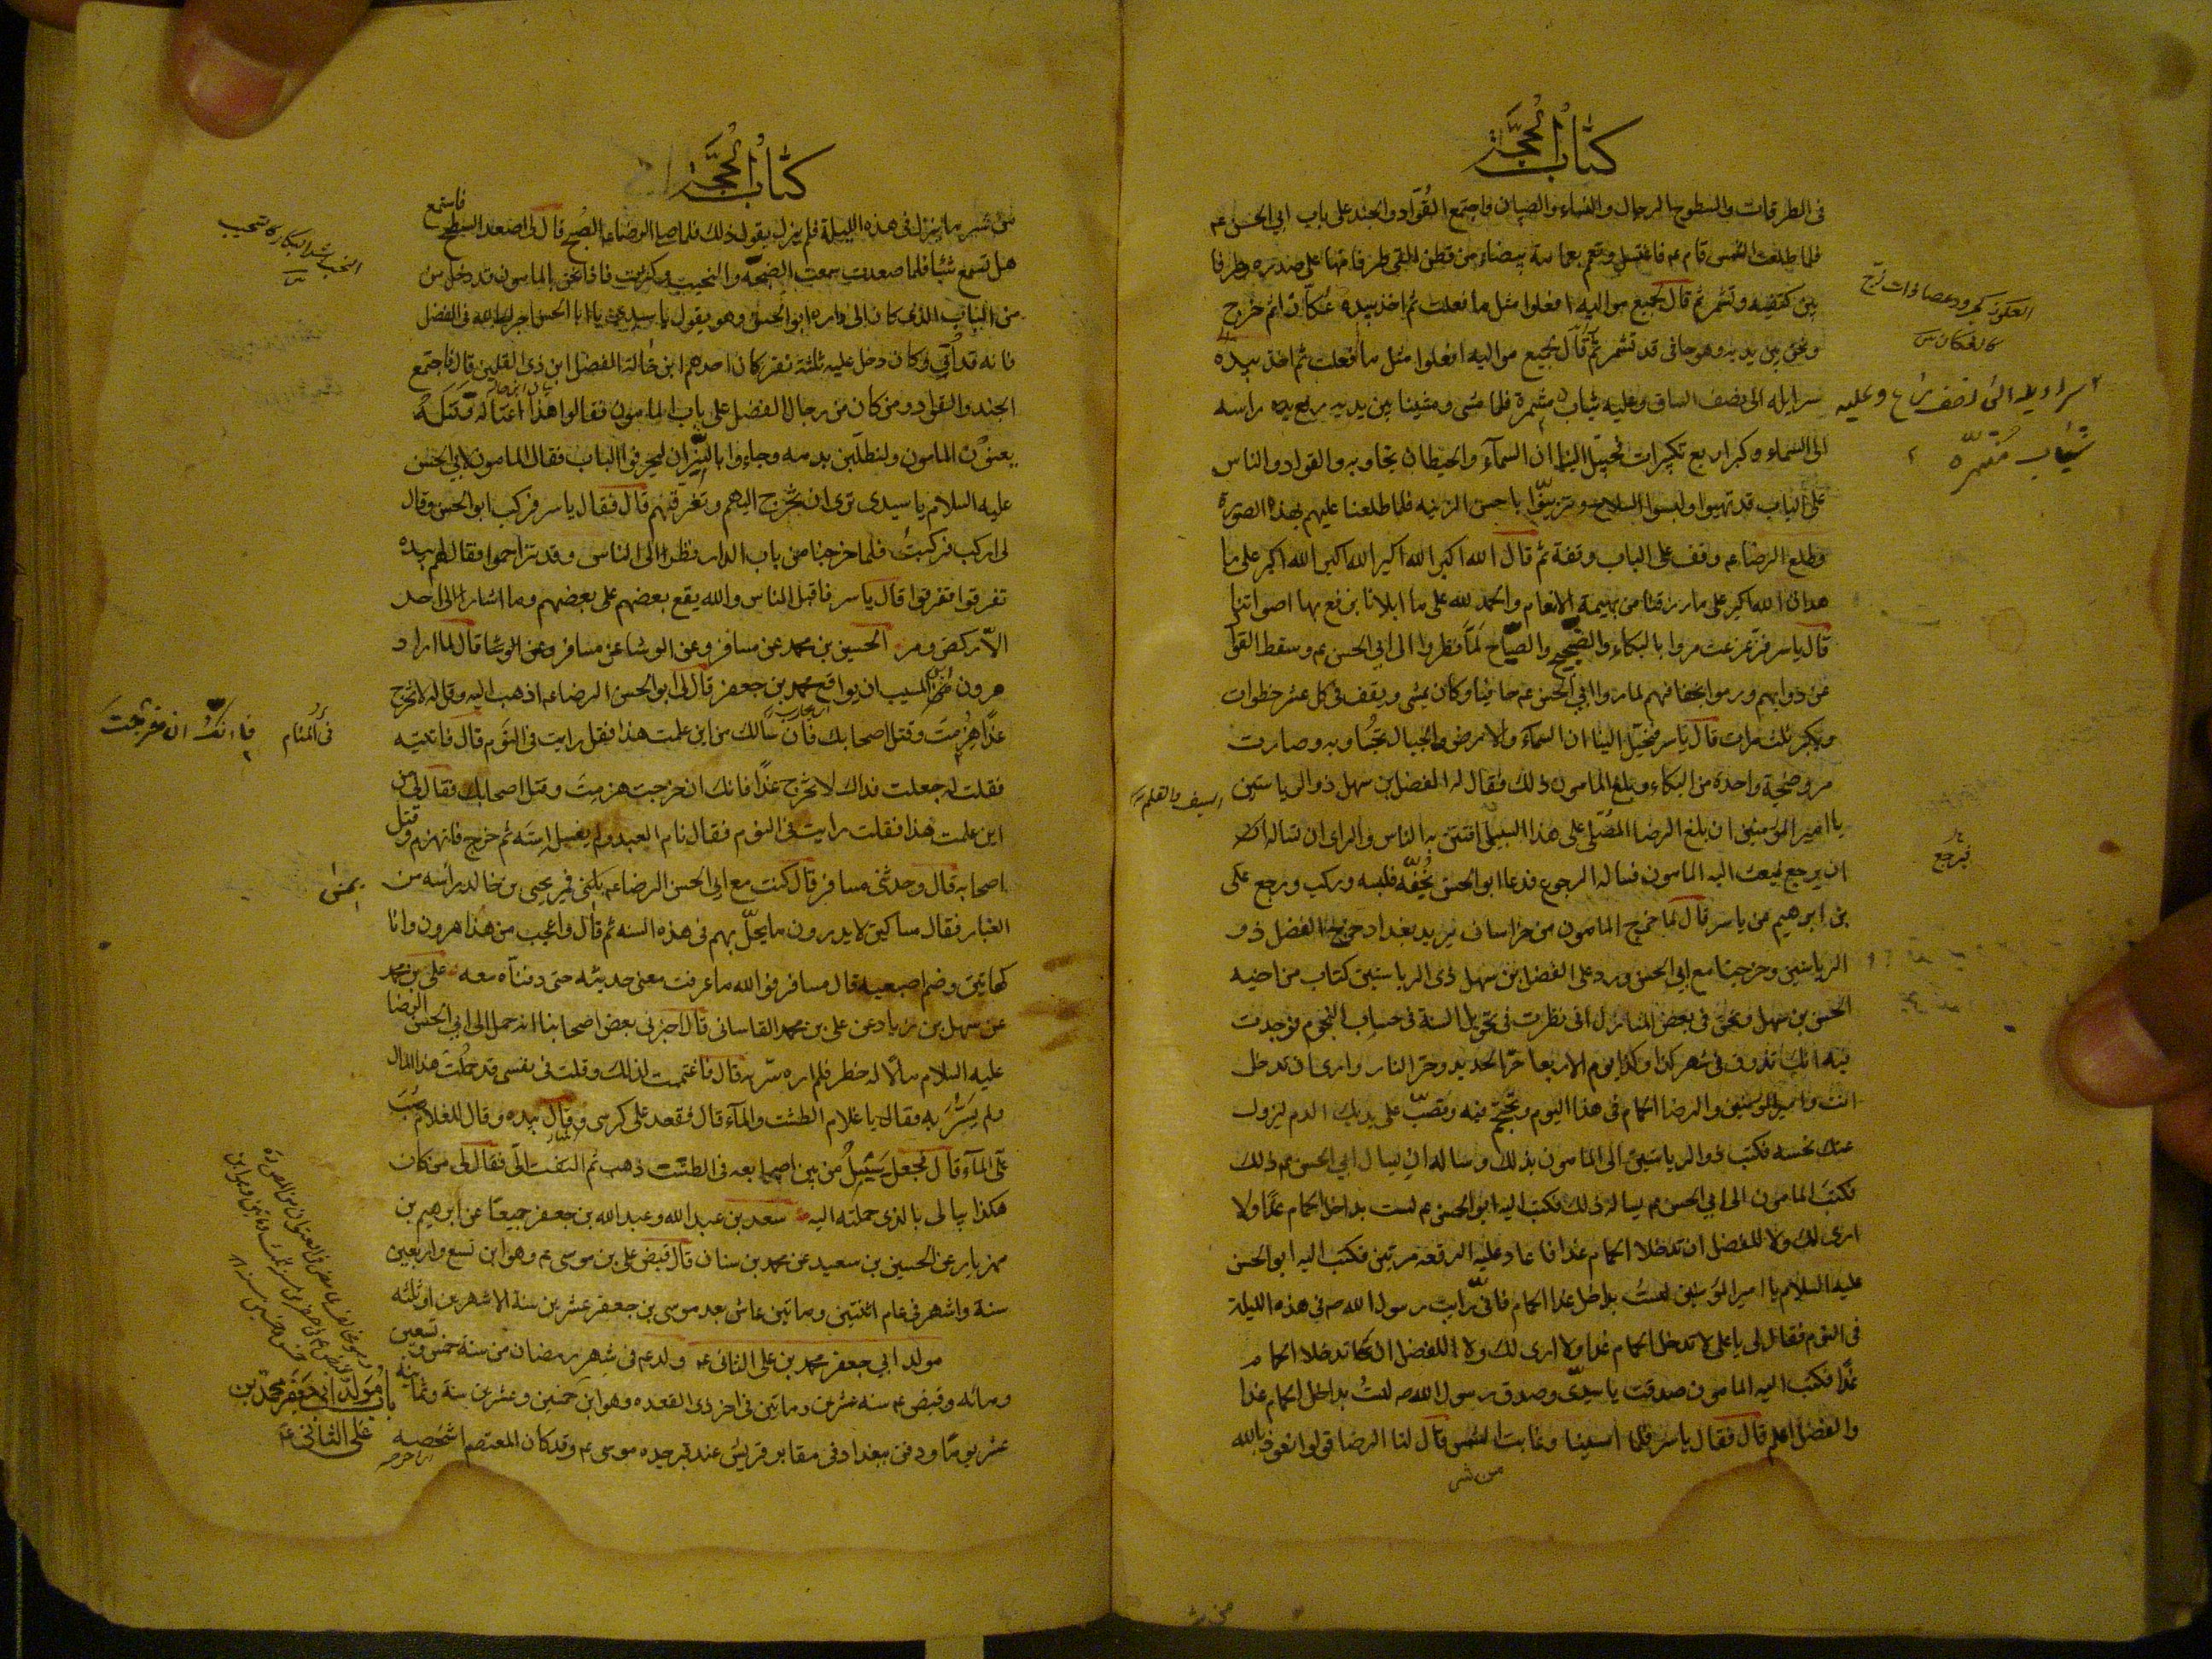 كتاب الحجة
فى الطرقات والسطوح الرجال والنساء والصبيان واجتمع القواد والجند على باب ابي الحسن ع
فلما طلعت الشمس قام ع فاغتسل وتعمم بعمامة بيضاء من قطن القى طرفا منها على صدره وطرفا
بين كتفيه وتشمر ثم قال لجميع مواليه افعلوا مثل ما فعلت ثم اخذ بيده عكازا ثم خرج
ونحن بين يديه وهو حافى قد شمر ثم قال لجميع مواليه افعلوا مثل ما فعلت ثم اخذ بيده
سرابله الى نصف الساق وعليه ثياب مشمرة فلما مشى ومشينا بين يديه رفع يده راسه
الى السماء وكبر اربع تكبيرات تخيل الينا ان السمآء والحيطان تجاوبه والقواد والناس
على الباب قد تهيوا ولبسوا السلاح وتزينوا باحسن الزينه فلما طلعنا عليهم بهذه الصورة
وطلع الرضا ع وقف على الباب وقفة ثم قال الله اكبر الله اكبر الله اكبر الله اكبر على ما
هدانا الله اكبر على ما رزقنا من بهيمة الانعام والحمد لله على ما ابلانا نرفع بها اصواتنا
قال ياسر فتزعزعت مروا بالبكاء والضجيج والصياح لما نظروا الى ابي الحسن ع وسقط القوا
من دوابهم ورموا بخفافهم لما راوا ابي الحسن ع حافيا وكان يمشى ويقف فى كل عشر خطوات
ويكبر ثلث مرات قال ياسر فتخيل الينا ان السماء والارض والجبال تجاوبه وصارت
مرو ضجة واحدة من البكاء وبلغ المامون ذلك فقال له الفضل بن سهل ذو الرياستين
يا امير المؤمنين ان بلغ الرضا المصلى على هذا السبيل افتتن به الناس والراى ان تساله
ان يرجع فبعث اليه المامون فساله الرجوع فدعا ابو الحسن بخفه فلبسه وركب ورجع على
بن ابرهيم عن ياسر قال لما خرج المامون من خراسان يريد بغداد وخرج الفضل ذو
الرياستين وخرجنا مع ابي الحسن ورد على الفضل بن سهل ذى الرياستين كتاب من اخيه
الحسن بن سهل ونحن فى بعض المنازل انى نظرت فى تحويل السنة فى حساب النجوم فوجدت
فيه انك تذوق فى شهر كذا وكذا يوم الاربعا حر الحديد وحر النار وارى ان تدخل
انت وامير المؤمنين والرضا الحمام فى هذا اليوم وتحتجم فيه وتصب على يديك الدم ليزول
عنك نحسه فكتب ذو الرياستين الى المامون بذلك وساله ان يسال ابي الحسن ع ذلك
فكتب المامون الى ابي الحسن ع يساله ذلك فكتب اليه ابو الحسن ع لست بداخل الحمام غدا ولا
ارى لك ولا للفضل ان تدخلا الحمام غدا فاعاد عليه الرقعه مرتين فكتب اليه ابو الحسن
عليه السلام يا امير المؤمنين لست بداخل غدا الحمام فانى رايت رسول الله ص فى هذه الليلة
فى النوم فقال لى يا على لا تدخل الحمام غدا ولا ارى لك ولا للفضل ان تدخلا الحمام
غدا فكتب اليه المامون صدقت يا سيدى وصدق رسول الله ص لست بداخل الحمام غدا
والفضل اعلم قال فقال ياسر فلما امسينا وغابت الشمس قال لنا الرضا قولوا نعوذ بالله
من شر
كالعكاز س
سراويله الى نصف الساق وعليه
ثياب مشمرة
السيف والقلم
فيرجع
كتاب الحجة
من شر ما ينزل فى هذه الليلة فلم يزل يقول ذلك فلما صلى الرضا ع الصبح قال لى اصعد السطح فاستمع
هل تسمع شيئا فلما صعدت سمعت الضجة والنحيب وكثرت فاذا نحن بالمامون قد دخل من
من الباب الذى كان الى داره ابو الحسن وهو يقول يا سيدى يا ابا الحسن اجرك الله فى الفضل
فانه قد اُتي وكان دخل عليه ثلثة نفر كان احدهم ابن خالة الفضل ابن ذى القلمين قال فاجتمع
الجند والقواد ومن كان من رجال الفضل على باب المامون فقالوا هذا اغتاله وقتله
يعنون المامون ولنطلبن بدمه وجاءوا بالنيران ليحرقوا الباب فقال المامون لابي الحسن
عليه السلام يا سيدى ترى ان تخرج اليهم وتفرقهم قال فقال ياسر فركب ابو الحسن وقال
لى اركب فركبت فلما خرجنا من باب الدار نظر الى الناس وقد تزاحموا فقال لهم بيده
تفرقوا تفرقوا قال ياسر فاقبل الناس والله يقع بعضهم على بعض وما اشار الى احد
الا ركض ومر الحسين بن محمد عن مسافر وعن الوشا عن مسافر قال لما اراد
هرون بن المسيب ان يواقع محمد بن جعفر قال لى ابو الحسن الرضا ع اذهب اليه وقل له لا تخرج
غدا هزمت وقتل اصحابك فان سالك من اين علمت هذا فقل رايت فى النوم قال فاتيته
فقلت له جعلت فداك لا تخرج غدا فانك ان خرجت هزمت وقتل اصحابك فقال لى من
اين علمت هذا فقلت رايت فى النوم فقال نام العبد ولم يغسل استه ثم خرج فانهزم وقتل
اصحابه قال وحدثنى مسافر قال كنت مع ابي الحسن الرضا ع بمنى فمر يحيى بن خالد راسه من
الغبار فقال مساكين لا يدرون ما يحل بهم فى هذه السنه ثم قال واعجب من هذا هرون وانا
كهاتين وضم اصبعيه قال مسافر فوالله ما عرفت معنى حديثه حتى دفناه معه على بن محمد
عن سهل بن زياد عن على بن محمد القاسانى قال اخبرنى بعض اصحابنا انه حمل الى ابي الحسن الرضا
عليه السلام مالا له خطر فلم اره سر به قال فاغتممت لذلك وقلت فى نفسى قد حملت هذا المال
ولم يسر به فقال يا غلام الطشت والمآء قال فقعد على كرسى وقال بيده وقال للغلام صب
على المآء قال فجعل يسيل من بين اصابعه فى الطشت ذهب ثم التفت الى فقال لى من كان
هكذا يبالى بالذى حملته اليه سعد بن عبدالله وعبدالله بن جعفر جميعا عن ابرهيم بن
مهزيار عن الحسين بن سعيد عن محمد بن سنان قال قبض على بن موسى ع وهو ابن تسع واربعين
سنة واشهر فى عام اثنتين وماتين عاش بعد موسى بن جعفر عشرين سنة الا شهرين او ثلثه
مولد ابي جعفر محمد بن على الثانى ع ولد ع فى شهر رمضان من سنة خمس وتسعين
ومائه وقبض ع سنه عشرين وماتين فى اخر ذى القعده وهو ابن خمس وعشرين سنة وثمانية
عشر يوما ودفن ببغداد فى مقابر قريش عند قبر جده موسى ع وقد كان المعتصم اشخصه
فى المنام
فانك ان خرجت
بمنى
باب مولد ابي جعفر محمد بن
على الثانى ع